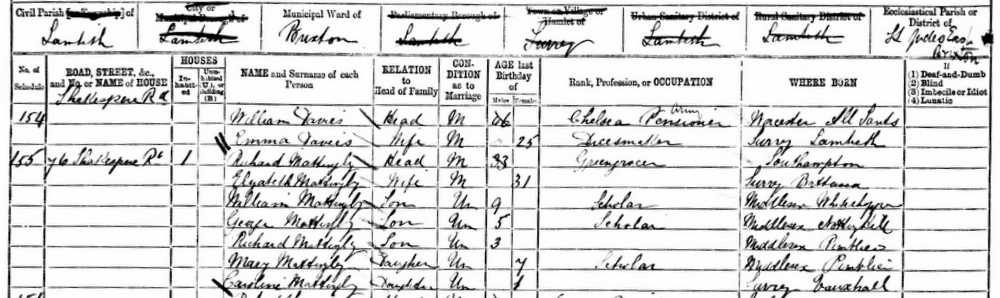 Civil Parish [or Township] of
City or Municipal Borough of
Municipal Ward of
Parliamentary Borough of
Town or Village or Hamlet of
Urban Sanitary District of
Rural Sanitary District of
Ecclesiastical Parish or District of
Lambeth
Lambeth
Brixton
Lambeth
Surrey
Lambeth
Lambeth
St Judes East Brixton
No. of Schedule
ROAD, STREET, &c., and No. or NAME of HOUSE
HOUSES
Inhabited
Uninhabited (U.), or Building (B.)
NAME and Surname of each Person
RELATION to Head of Family
CONDITION as to Marriage
AGE last Birthday of
Males
Females
Rank, Profession, or OCCUPATION
WHERE BORN
If
(1) Deaf-and-Dumb
(2) Blind
(3) Imbecile or Idiot
(4) Lunatic
Shakespere Rd
154 William Davis Head M Chelsea Army Pensioner Worcester All Saints
Emma Daveis Wife M 25 Dressmaker Surry Lambeth
155 76 Shakespere Rd 1 Richard Mattingly Head M 33 Greengrocer Southampton
Elizabeth Mattingly Wife M 31 Surry
William Mattingly Son Un 9 Scholar Middlesex
George Mattingly Son Un 5 Scholar Middlesex Nottinghill
Richard Mattingly Son Un 3 Middlesex Pimblico
Mary Mattingly Daugher Un 7 Scholar Myddlesex Pimblico
Caroline Mattingly Daughter Un 1 Surry Vauxhall